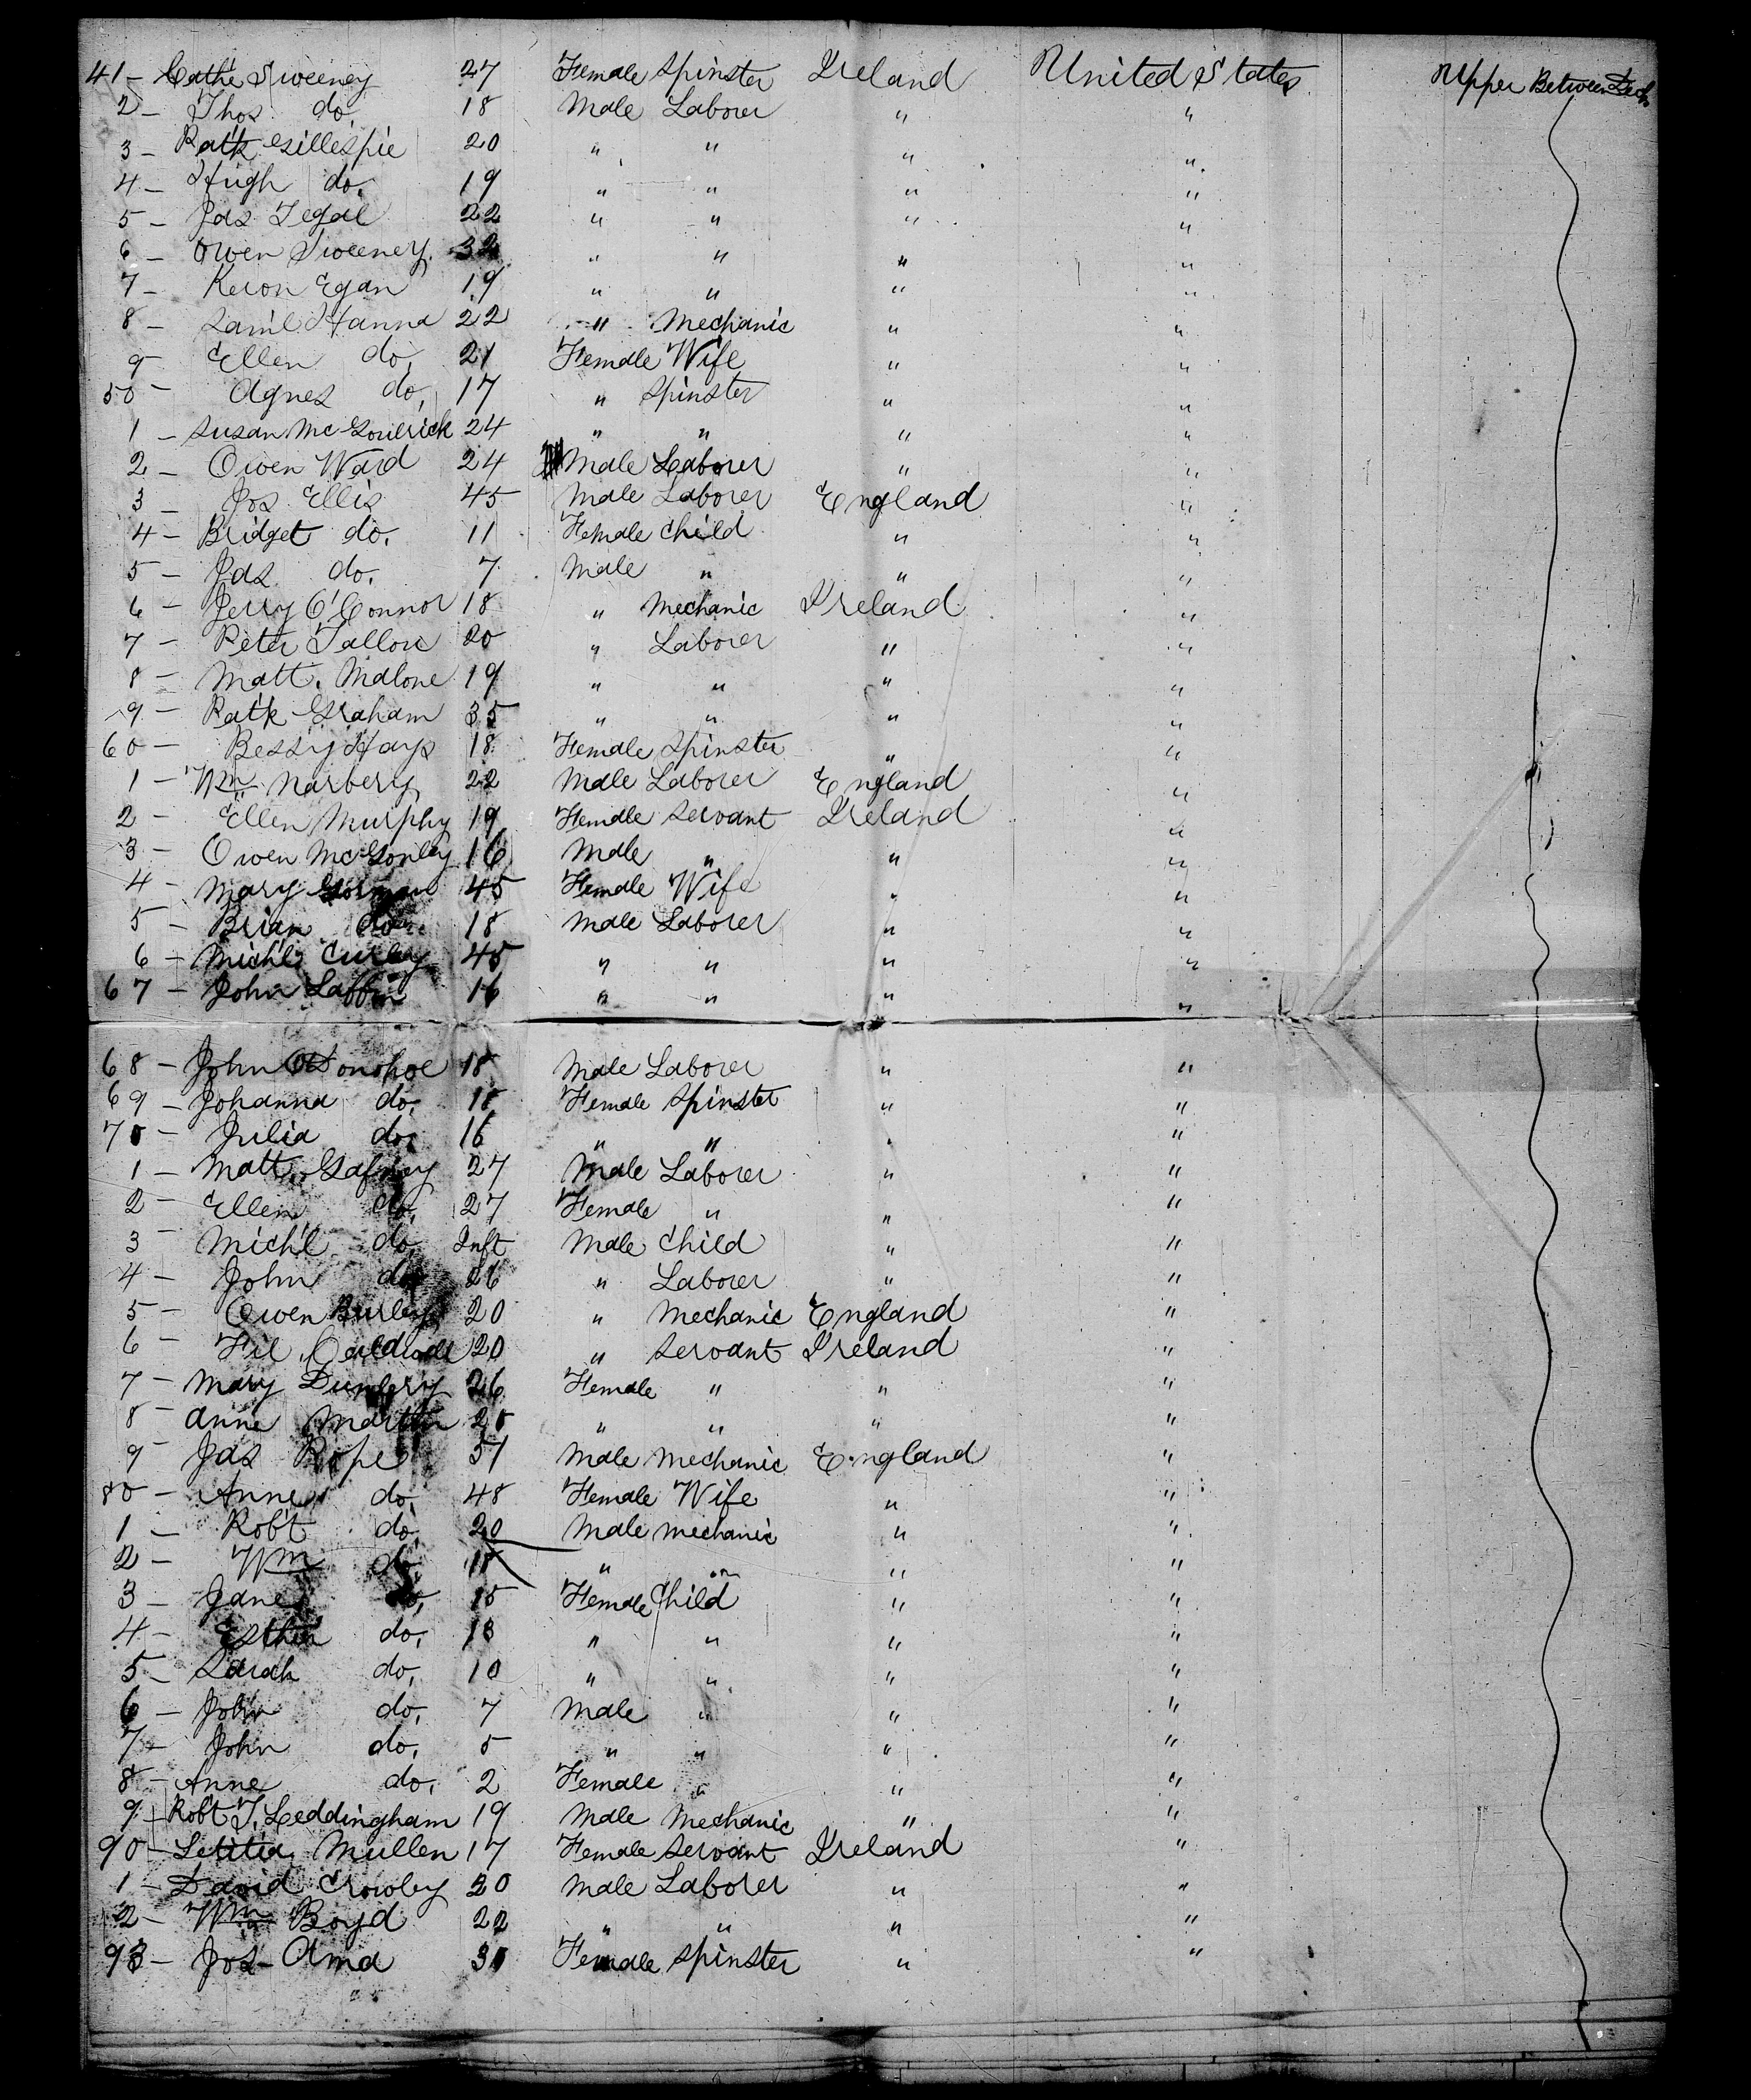 41 - Cathe Sweeney 27 Female Spinster Ireland United States Upper Between Deck
2 - Thos do 18 Male Laborer " "
3 - Patk Gillespie 20 " " " "
4 - Hugh do. 19 " " " "
5 - Jas Tegal 22 " " " "
6 - Owen Sweeney 32 " " " "
7 - Keron Egan 19 " " " "
8 - Saml Hanna 22 " Mechanic " "
9 - Ellen do, 21 Female Wife " "
50 - Agnes do, 17 " Spinster " "
1 - Susan McGoulrick 24 " " " "
2 - Owen Ward 24 Male Laborer " "
3 - Jos Ellis 45 Male Laborer England "
4 - Bridget do. 11 Female Child " "
5 - Jas do. 7 Male " " "
6 - Jerry O'Connor 18 " Mechanic Ireland "
7 - Peter Fallon 20 " Laborer " "
8 - Matt. Malone 19 " " " "
9 - Patk Graham 35 " " " "
60 - Bessy Hays 18 Female Spinster " "
1 - Wm Narbery 22 Male Laborer England "
2 - Ellen Murphy 19 Female Servant Ireland "
3 - Owen McGonley 16 Male " " "
4 - Mary Gorman 45 Female Wife " "
5 - Brian do 18 Male Laborer " "
6 - Michl Curley 45 " " " "
67 - John Laffin 16 " " " "
68 - John O'Donohoe 18 Male Laborer " "
69 - Johanna do. 18 Female Spinster " "
70 - Julia do, 16 " " " "
1 - Matt. Gafney 27 Male Laborer " "
2 - Ellen do, 27 Female " " "
3 - Mich'l do, Inft Male Child " "
4 - John do 26 " Laborer " "
5 - Owen Burley 20 " Mechanic England "
6 - 20 " Servant Ireland "
7 - Mary 26 Female " " "
8 - Anne Martin 20 " " " "
9 - Jas Rope 51 Male Mechanic England "
80 - Anne do, 48 Female Wife " "
1 - Robt do, 20 Male Mechanic " "
2 - Wm do, 18 " " " "
3 - Jane do, 15 Female Child " "
4 - Esther do, 13 " " " "
5 - Sarah do, 10 " " " "
6 - John do, 7 Male " " "
7 - John do, 5 " " " "
8 - Anne do, 2 Female " " "
9 - Robt T. Leddingham 19 Male Mechanic " "
90 - Letitia Mullen 17 Female Servant Ireland "
1 - David Crowley 20 Male Laborer " "
2 - Wm Boyd 22 " " " "
93 - Jos- Ama 30 Female Spinster " "